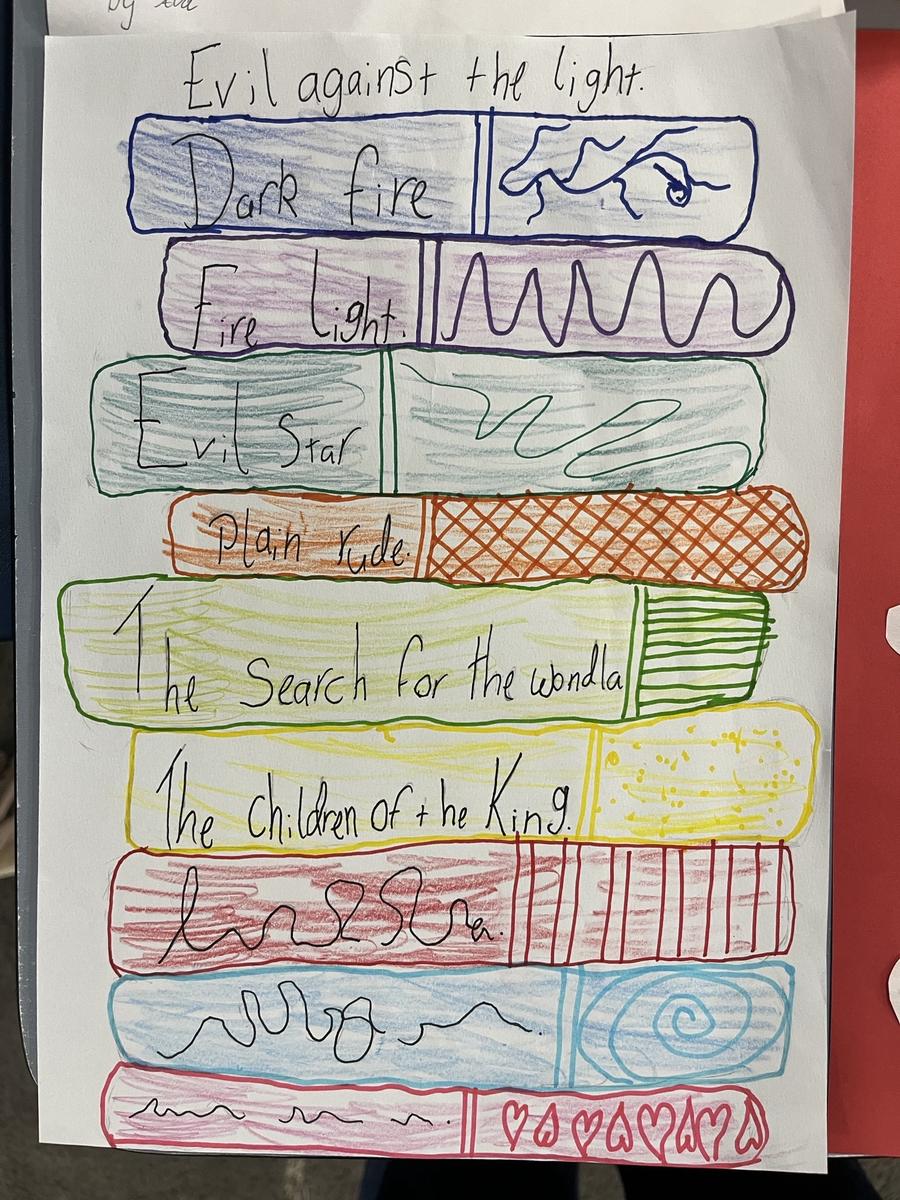 by
Evil against the light.
Dark fire
Fire light.
Evil Star
Plain rude.
The Search for the wondla
The children of the King.